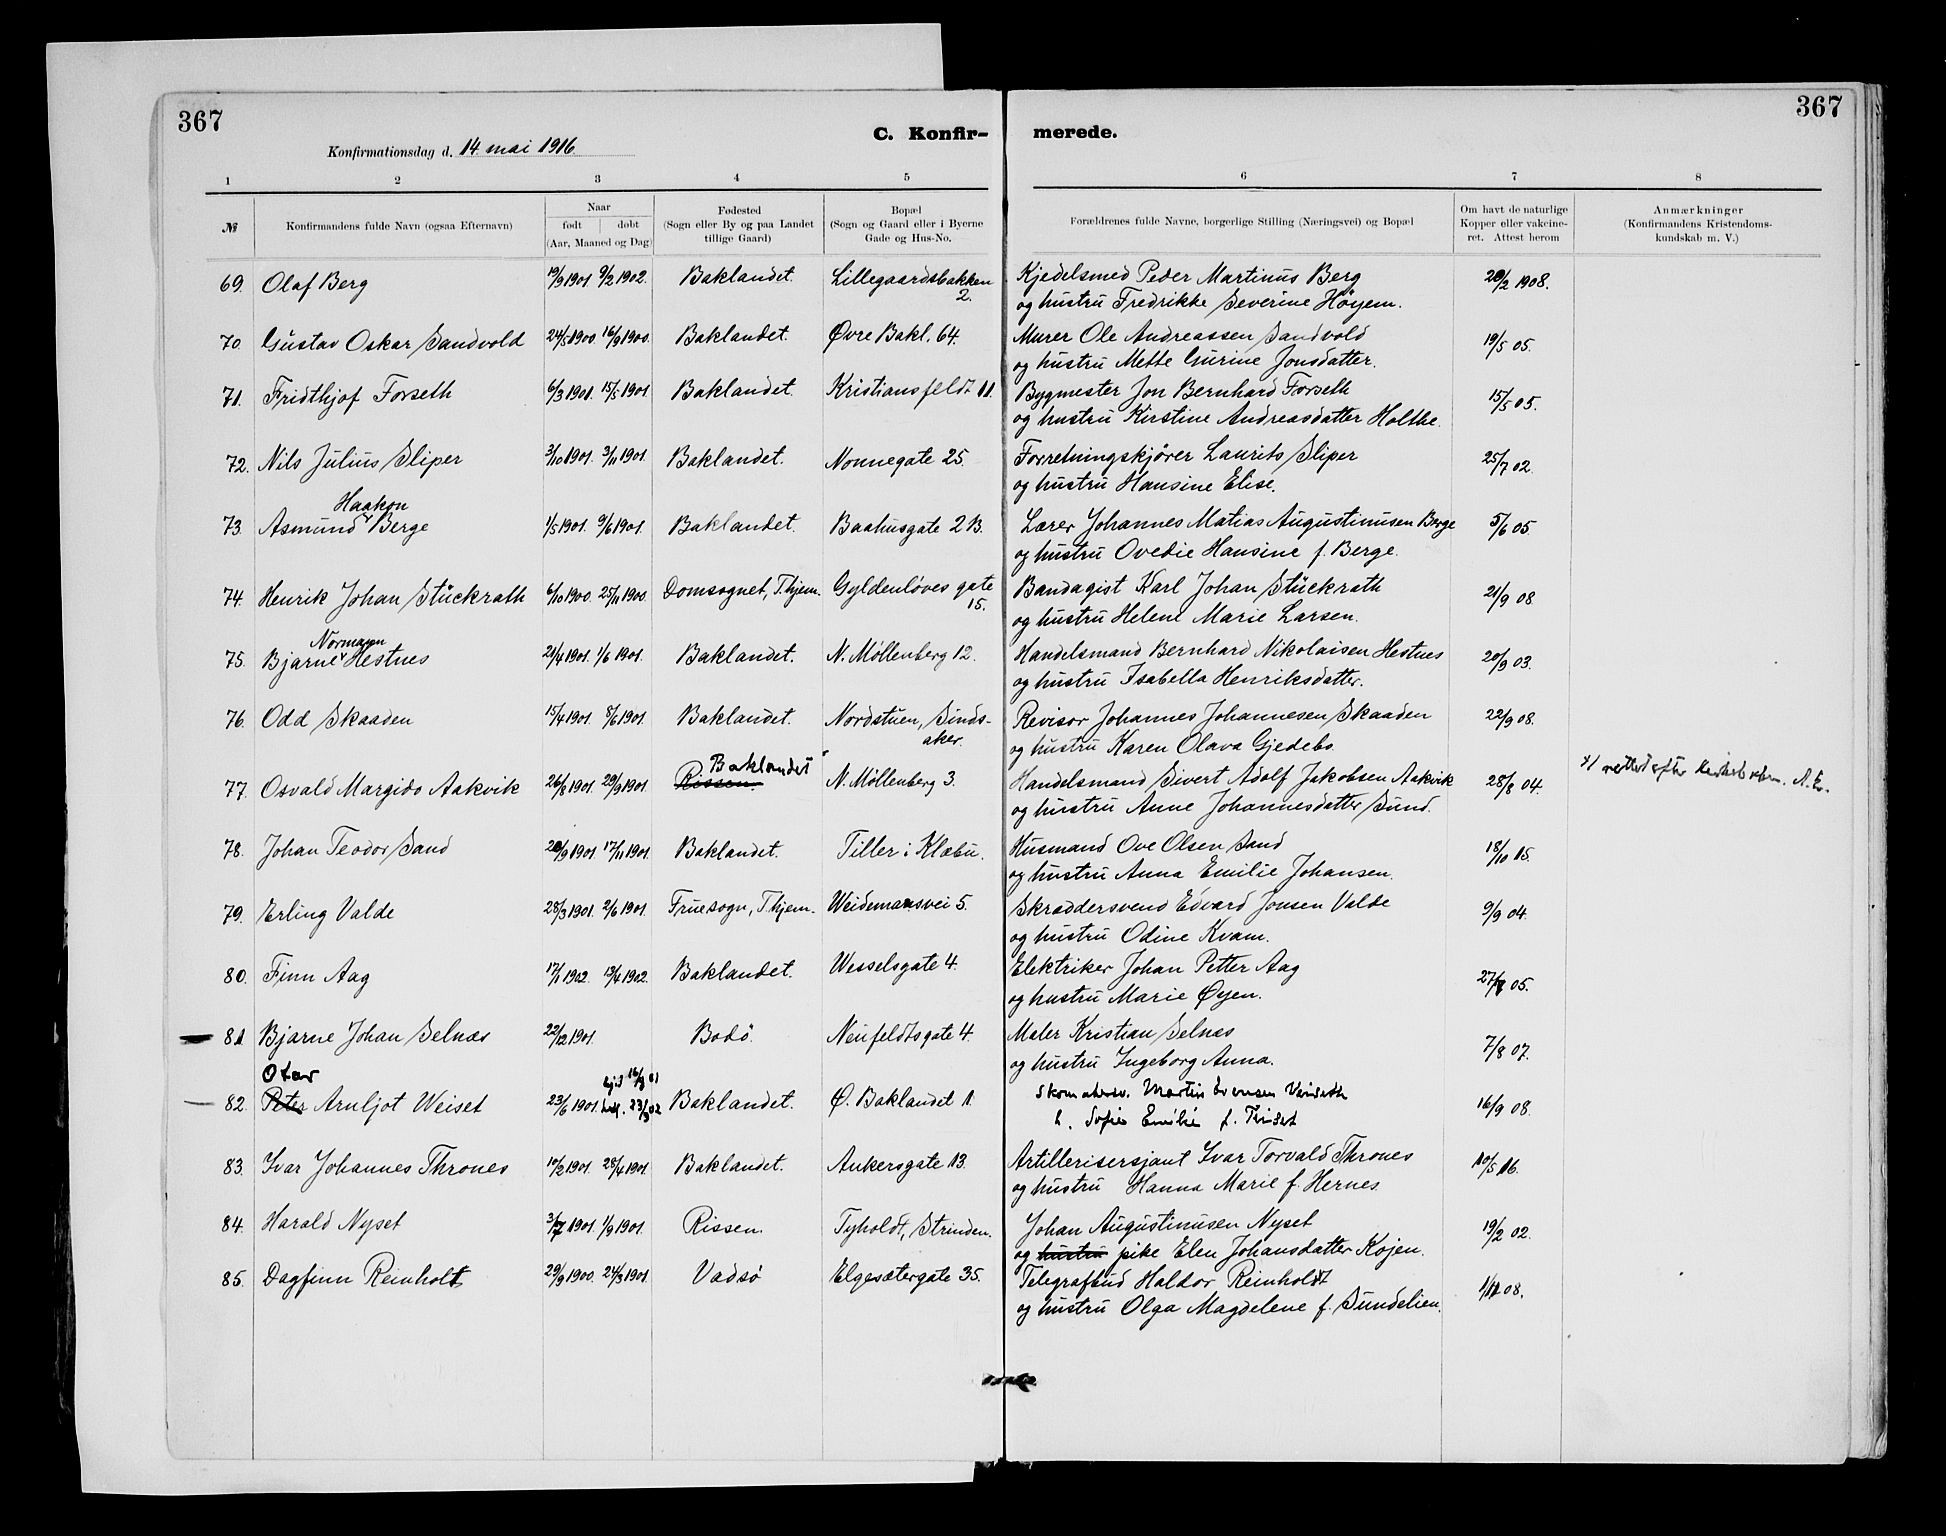 367
367
Konfirmationsdag d. 14 mai 1916
C. Konfir-
merede.
1 2 3 4 5 6 7 8
№
Konfirmandens fulde Navn (ogsaa Efternavn)
Naar
født døbt
(Aar, Maaned og Dag)
Fødested
(Sogn eller By og paa Landet
tillige Gaard)
Bopæl
(Sogn og Gaard eller i Byerne
Gade og Hus-No.
Forældrenes fulde Navne, borgerlige Stilling (Næringsvei) og Bopæl
Om havt de naturlige
Kopper eller vakcine-
ret. Attest herom
Anmærkninger
(Konfirmandens Kristendoms-
kundskab m. V.)
69. Olaf Berg 19/9 1901 9/2 1902. Baklandet. Lillegaardsbakken Kjedelsmed Peder Martinus Berg 20/2 1908.
2. og hustru Fredrikke Severine Höyem.
70. Gustav Oskar Sandvold 24/5 1900. 16/9 1900. Baklandet. Øvre Bakl. 64. Murer Ole Andreassen Sandvold 19/5 05.
og hustru Mette Gurine Jonsdatter.
71. Fridthjof Forseth 6/3 1901. 15/5 1901. Baklandet. Kristiansfeldt 11. Bygmester Jon Bernhard Forseth 15/5 05.
og hustru Kirstine Andreasdatter Holthe.
72. Nils Julius Sliper 3/10 1901. 3/11 1901. Baklandet. Nonnegate 25. Forretningskjører Laurits Sliper 25/7 02.
og hustru Hansine Elise.
Haakon
73. Asmund Berge 1/5 1901. 9/6 1901. Baklandet. Baahusgate 2 B. Lærer Johannes Matias Augustinusen Berge 5/6 05.
og hustru Ovedie Hansine f. Berge.
74. Henrik Johan Stückrath 6/10 1900. 25/11 1900. Domsognet, T.hjem. Gyldenløves gate Bandagist Karl Johan Stückrath 21/9 08
15. og hustru Helene Marie Larsen.
Normann
75. Bjarne Hestnes 21/4 1901. 1/6 1901. Baklandet. N. Møllenberg 12. Handelsmand Bernhard Nikolaisen Hestnes 20/9 03.
og hustru Isabella Henriksdatter.
76. Odd Skaaden 15/4 1901. 8/6 1901. Baklandet. Nordstuen, Sinds- Revisor Johannes Johannesen Skaaden 22/9 08.
aker. og hustru Karen Olava Gjedebo.
Baklandet
77. Osvald Margido Aakvik 26/8 1901. 29/9 1901. Rissen. N. Møllenberg 3. Handelsmand Sivert Adolf Jakobsen Aakvik 28/8 04. rettet efter
og hustru Anne Johannesdatter Sund.
78. Johan Teodor Sand 20/9 1901. 17/11 1901. Baklandet. Tiller i Klæbu. Husmand Ove Olsen Sand 18/10 15.
og hustru Anna Emilie Johansen.
79. Erling Valde 28/3 1901. 2/6 1901. Fruesogn, T.hjem. Weidemansvei 5. Skræddersvend Edvard Jonsen Valde 9/9 04.
og hustru Odine Kvam.
80. Finn Aag 17/1 1902. 13/4 1902. Baklandet. Wesselsgate 4. Elektriker Johan Petter Aag 05.
og hustru Marie Øyen.
81. Bjarne Johan Selnæs 22/12 1901. Bodö. Neufeldtsgate 4. Maler Kristian Selnæs 7/8 07.
og hustru Ingeborg Anna.
Otar
82. Peter Arnljot Weiset 23/6 1901. Baklandet. Ø. Baklandet 1. Skomakersv. Martin Evensen 16/9 08.
h. Sofie Emilie f.
83. Ivar Johannes Thrones 10/2 1901. 28/4 1901. Baklandet. Ankersgate 13. Artillerisersjant Ivar Torvald Thrones 10/5 16.
og hustru Hanna Marie f. Hernes.
84. Harald Nyset 3/7 1901. 1/9 1901. Rissen. Tyholdt, Strinden. Johan Augustinusen Nyset 19/2 02.
og hustru pike Elen Johansdatter Kojen.
85. Dagfinn Reinholt 29/9 1900. 24/3 1901. Vadsø Elgesætergate 35. Telegrafbud Haldor Reinholdt 1/11 08.
og hustru Olga Magdelene f. Sundelien.